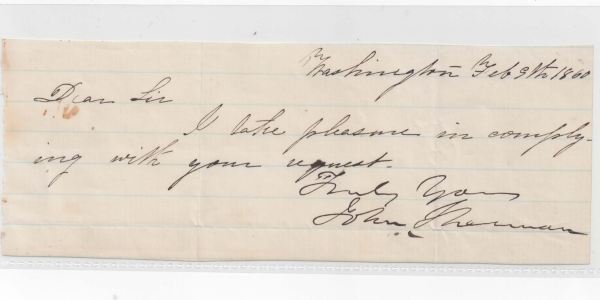 Washington Feb 9th 1860
Dear Sir
I take pleasure in comply-
ing with your request.
Truly Yours
John Sherman